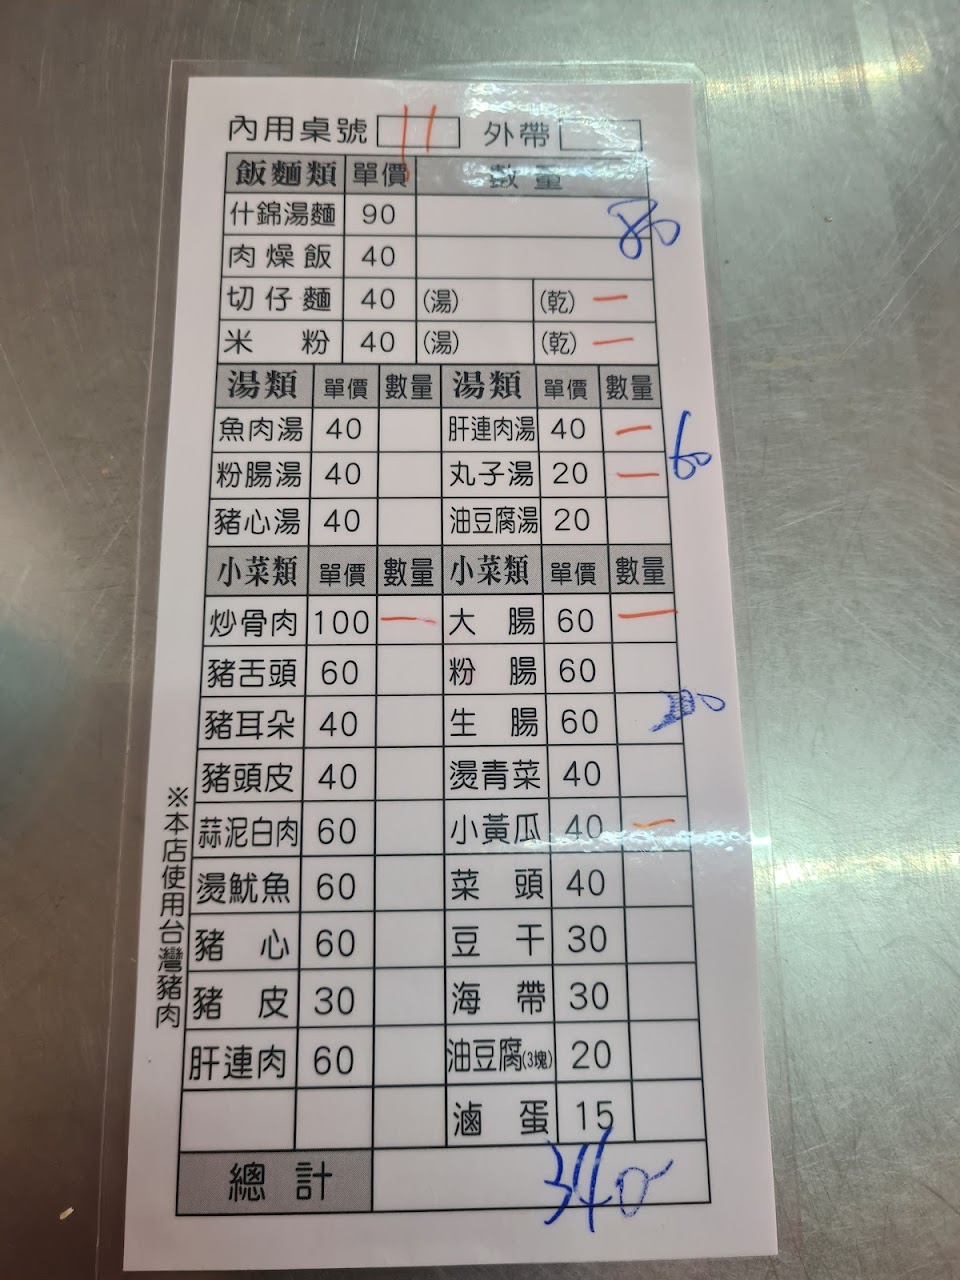 內用桌號 11 外帶
飯麵類 單價 數量
什錦湯麵 90
肉燥飯 40 80
切仔麵 40 (湯) (乾) 一
米粉 40 (湯) (乾) 一
湯類 單價 數量 湯類 單價 數量
魚肉湯 40 肝連肉湯 40 一
粉腸湯 40 丸子湯 20 一 60
豬心湯 40 油豆腐湯 20
小菜類 單價 數量 小菜類 單價 數量
炒骨肉 100 一 大腸 60 一
豬舌頭 60 粉腸 60
豬耳朵 40 生腸 60
豬頭皮 40 燙青菜 40
蒜泥白肉 60 小黃瓜 40 一
燙魷魚 60 菜頭 40
豬心 60 豆干 30
豬皮 30 海帶 30
肝連肉 60 油豆腐(3塊) 20
滷蛋 15
總計 340
※本店使用台灣豬肉